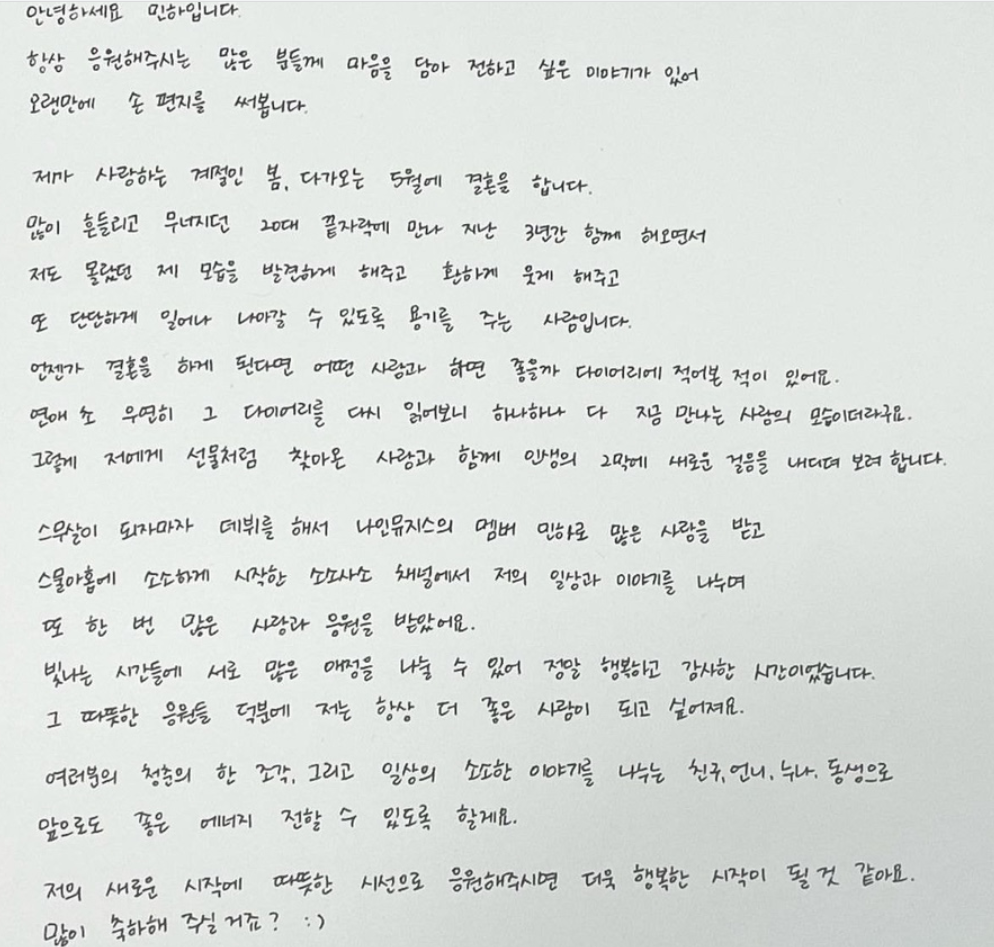 안녕하세요 민하입니다.
항상 응원해주시는 많은 분들께 마음을 담아 전하고 싶은 이야기가 있어
오랜만에 손 편지를 써봅니다.
제가 사랑하는 계절인 봄, 다가오는 5월에 결혼을 합니다.
많이 흔들리고 무너지던 20대 끝자락에 만나 지난 3년간 함께 해오면서
저도 몰랐던 제 모습을 발견하게 해주고 환하게 웃게 해주고
또 단단하게 일어나 나아갈 수 있도록 용기를 주는 사람입니다.
언젠가 결혼을 하게 된다면 어떤 사람과 하면 좋을까 다이어리에 적어본 적이 있어요.
연애 초 우연히 그 다이어리를 다시 읽어보니 하나하나 다 지금 만나는 사람의 모습이더라구요.
그렇게 저에게 선물처럼 찾아온 사람과 함께 인생의 2막에 새로운 걸음을 내디뎌 보려 합니다.
스무살이 되자마자 데뷔를 해서 나인뮤지스의 멤버 민하로 많은 사랑을 받고
스물아홉에 소소하게 시작한 소소사소 채널에서 저의 일상과 이야기를 나누며
또 한 번 많은 사랑과 응원을 받았어요.
빛나는 시간들에 서로 많은 애정을 나눌 수 있어 정말 행복하고 감사한 시간이었습니다.
그 따뜻한 응원들 덕분에 저는 항상 더 좋은 사람이 되고 싶어져요.
여러분의 청춘의 한 조각, 그리고 일상의 소소한 이야기를 나누는 친구, 언니, 누나, 동생으로
앞으로도 좋은 에너지 전할 수 있도록 할게요.
저의 새로운 시작에 따뜻한 시선으로 응원해주시면 더욱 행복한 시작이 될 것 같아요.
많이 축하해 주실 거죠? :)